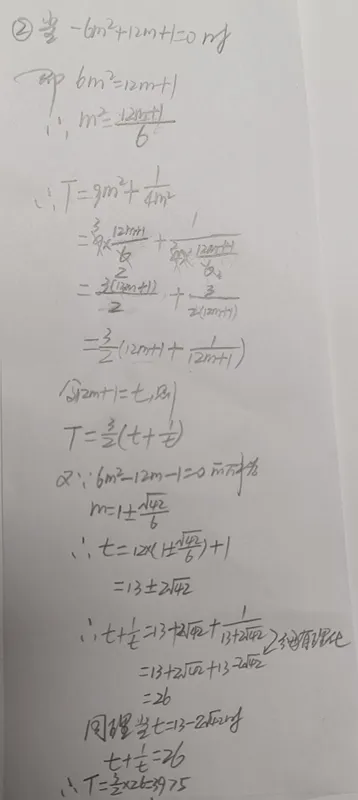 ② 当 -6m²+12m+1=0 时
即 6m²=12m+1
∴ m²=\frac{12m+1}{6}
∴ T=9m²+\frac{1}{4m²}
=9×\frac{12m+1}{6}+\frac{1}{4×\frac{12m+1}{6}}
=\frac{3(12m+1)}{2}+\frac{3}{2(12m+1)}
=\frac{3}{2}(12m+1+\frac{1}{12m+1})
令12m+1=t,则
T=\frac{3}{2}(t+\frac{1}{t})
又∵6m²-12m-1=0
m=1±\frac{\sqrt{42}}{6}
∴ t=12×(1±\frac{\sqrt{42}}{6})+1
=13±2\sqrt{42}
∴ t+\frac{1}{t}=13+2\sqrt{42}+\frac{1}{13+2\sqrt{42}} 有理化
=13+2\sqrt{42}+13-2\sqrt{42}
=26
同理当t=13-2\sqrt{42}时
t+\frac{1}{t}=26
∴T=\frac{3}{2}×26=3975